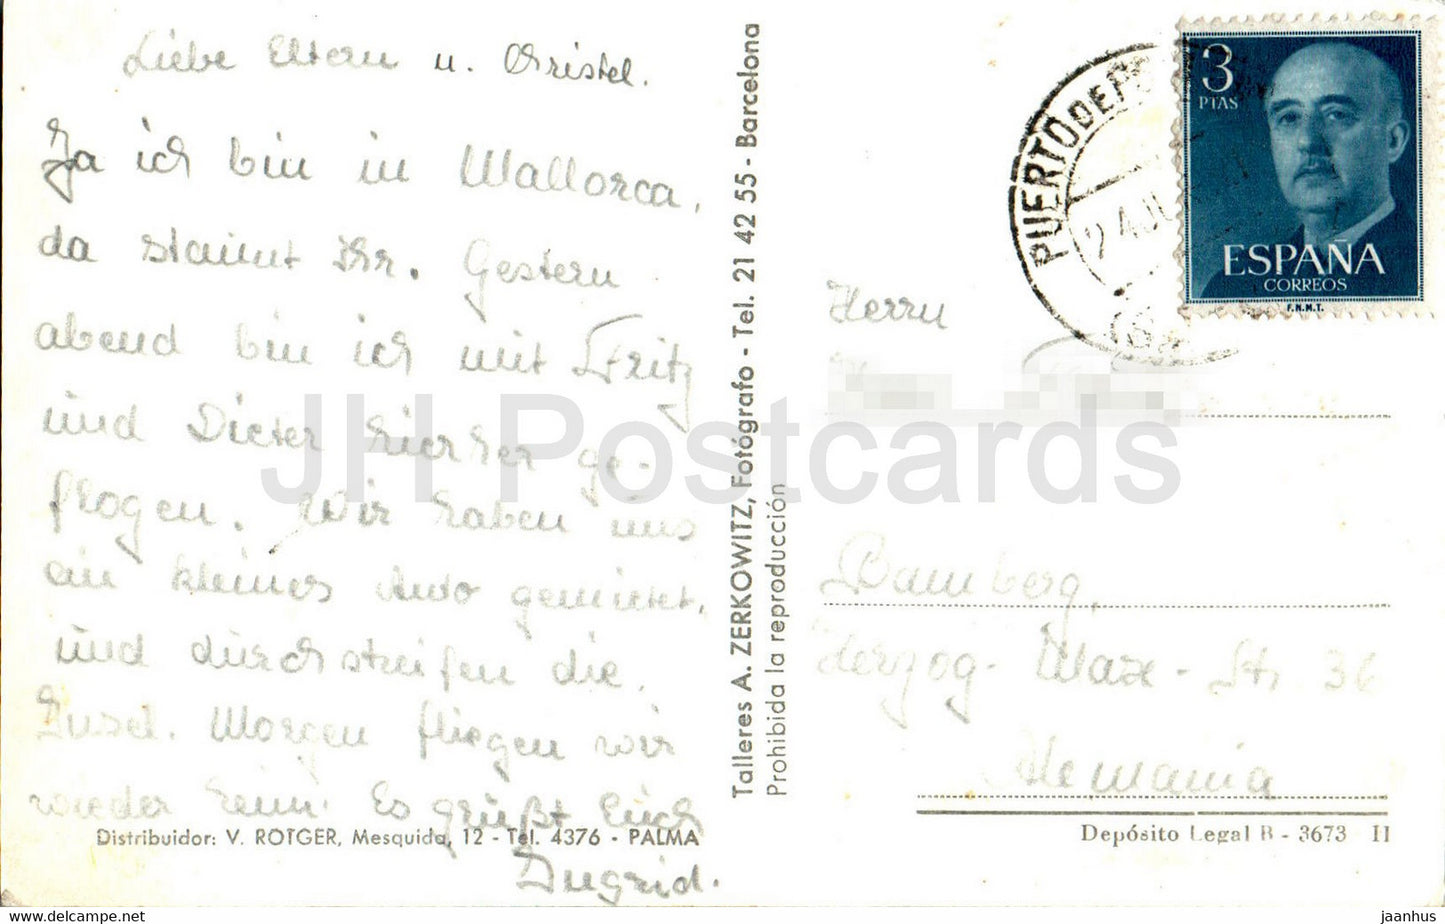 Liebe Eltern u. Christel.
Ja ich bin in Mallorca,
da staunt Ihr. Gestern
abend bin ich mit Fritz
und Dieter hierher ge-
flogen. Wir haben uns
ein kleines Auto gemietet,
und durchstreifen die
Insel. Morgen fliegen wir
wieder heim. Es grüßt Euch
Ingrid.
Distribuidor: V. ROTGER, Mesquida, 12 - Tel. 4376 - PALMA
Talleres A. ZERKOWITZ, Fotógrafo - Tel. 21 42 55 - Barcelona
Prohibida la reproducción
PUERTO DE
24 JU
3
PTAS
ESPAÑA
CORREOS
F.N.M.T.
Herrn
Bamberg,
Herzog-Max-Str. 36
Alemania
Depósito Legal B - 3673 II
JH Postcards
www.delcampe.net
jaanhus